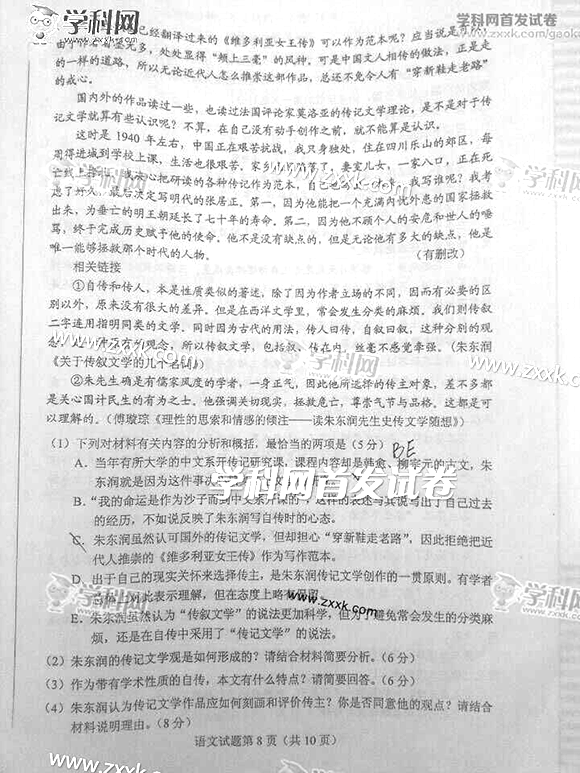 学科网首发试卷
www.zxxk.com/gaoka
已经翻译过来的《维多利亚女王传》可以作为范本呢?应当说是
多,处处显得“颊上三毫”的风神,可是中国文人相传的做法,正是走
的一样的道路,所以无论近代人怎么推崇这部作品,总还不免令人有“穿新鞋走老路”
的戒心。
国内外的作品读过一些,也读过法国评论家莫洛亚的传记文学理论,是不是对于传
记文学就算有些认识呢?不算,在自己没有动手创作之前,就不能算是认识。
这时是1940年左右,中国正在艰苦抗战,我只身独处,住在四川乐山的郊区,每
周得进城到学校上课,生活也很艰苦。家乡
妻室儿女,一家八口,正在死
亡线上
把研读的各种传记作为范本,自己也
我写谁呢?我考
虑了好久,最后决定写明代的张居正。第一,因为他能把一个充满内忧外患的国家拯救
出来,为垂亡的明王朝延长了七十年的寿命。第二,因为他不顾个人的安危和世人的唾
骂,终于完成历史赋予他的使命。他不是没有缺点的,但是无论他有多大的缺点,他是
唯一能够拯救那个时代的人物。 (有删改)
相关链接
①自传和传人,本是性质类似的著述,除了因为作者立场的不同,因而有必要的区
别以外,原来没有很大的差异。但是在西洋文学里,常会发生分类的麻烦。我们则传叙
二字连用指明同类的文学。同时因为古代的用法,传人曰传,自叙曰叙,这种分别的观
念,
的观念,所以传叙文学,包括叙、传在内,丝毫不感觉牵强。(朱东润
《关于传叙文学的几个名词》)
②朱先生确是有儒家风度的学者,一身正气,因此他所选择的传主对象,差不多都
是关心国计民生的有为之士。他强调关切现实,拯救危亡,尊崇气节与品格。这都是可
以理解的。(傅璇琮《理性的思索和情感的倾注——读朱东润先生史传文学随想》)
(1)下列对材料有关内容的分析和概括,最恰当的两项是(5分) BE
A.当年有所大学的中文系开传记研究课,课程内容却是韩愈、柳宗元的古文,朱
东润就是因为这件事决
B.“我的命运是作为沙子而到中文系开课的”,这样的表述与其说写出了自己过去
的经历,不如说反映了朱东润写自传时的心态。
C.朱东润虽然认可国外的传记文学,但却担心“穿新鞋走老路”,因此拒绝把近
代人推崇的《维多利亚女王传》作为写作范本。
D.出于自己的现实关怀来选择传主,是朱东润传记文学创作的一贯原则。有学者
对此表示理解,但在态度上略有保留。
E.朱东润虽然认为“传叙文学”的说法更加科学,但为了避免常会发生的分类麻
烦,还是在自传中采用了“传记文学”的说法。
(2)朱东润的传记文学观是如何形成的?请结合材料简要分析。(6分)
(3)作为带有学术性质的自传,本文有什么特点?请简要回答。(6分)
(4)朱东润认为传记文学作品应如何刻画和评价传主?你是否同意他的观点?请结合
材料说明理由。(8分)
语文试题第8页(共10页)
学科网首发试卷
www.zxxk.com